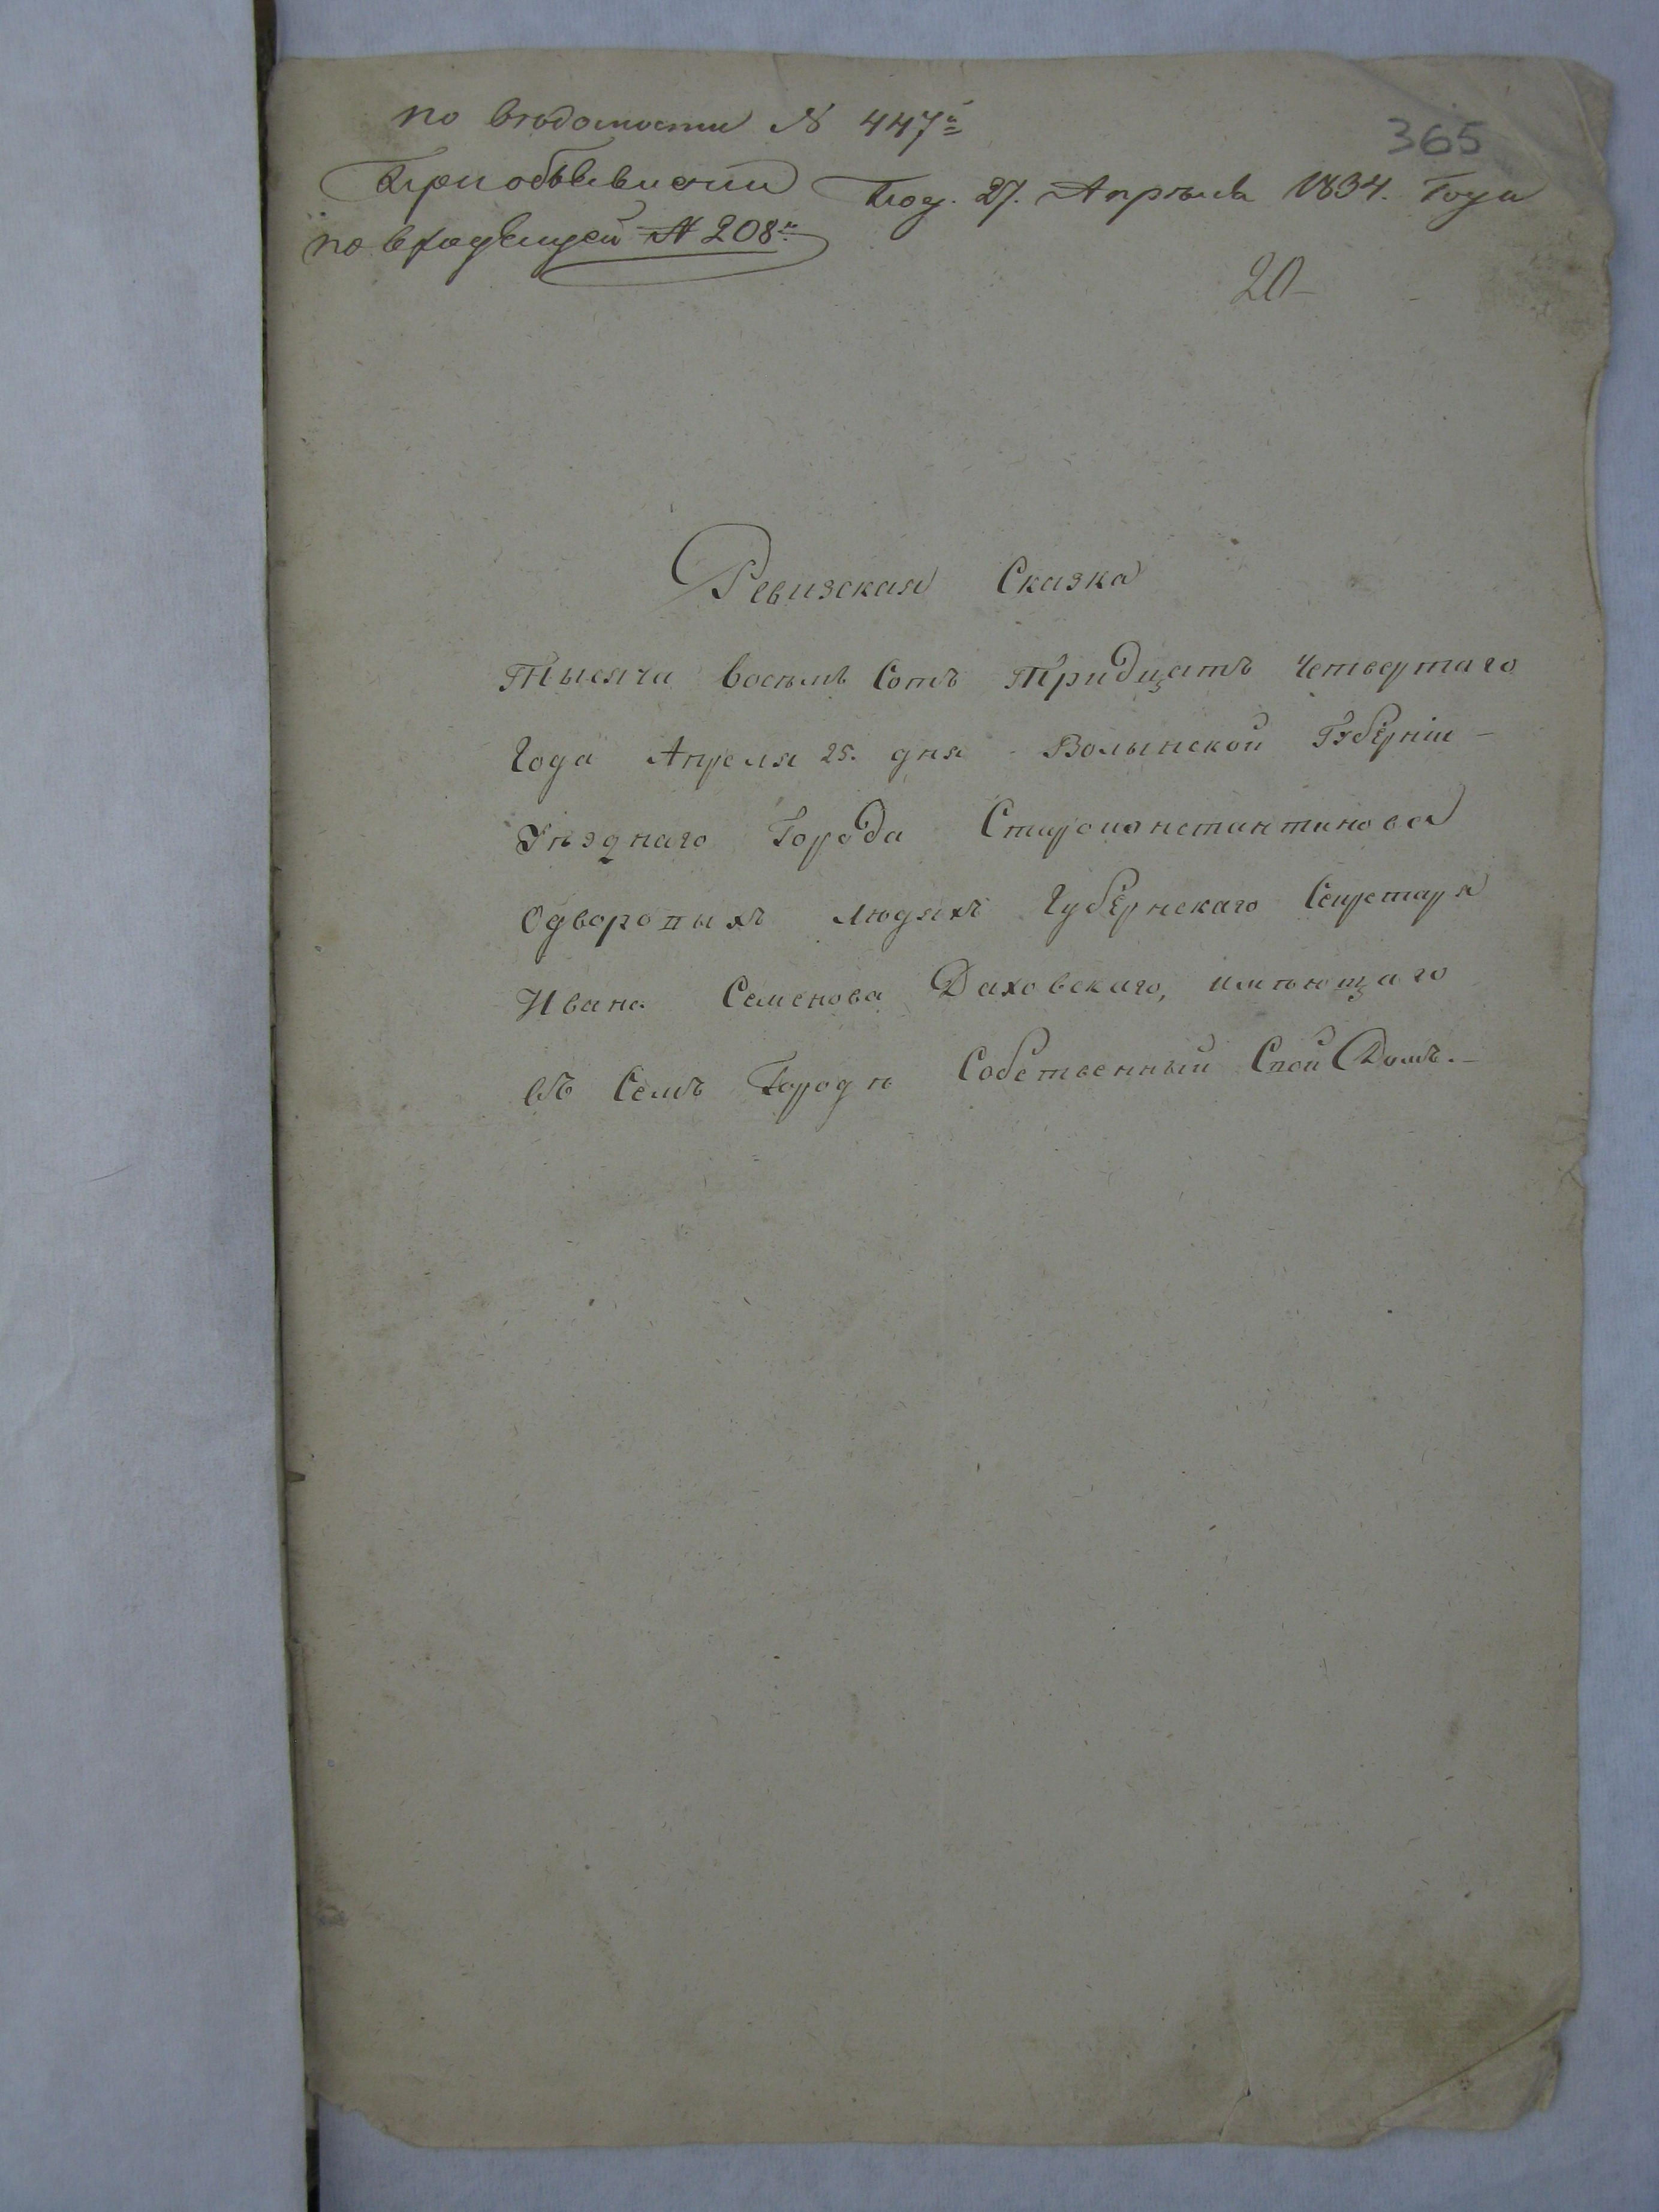 по вѣдомости № 447й
365
При объявленіи Под. 27. Апрѣля 1834. Года
по входящей № 208й
20
Ревизская Сказка
Тысяча восемь Сотъ Тридцать Четвертаго
Года Апреля 25. дня Волынской Губерніи
Уѣзднаго Города Староконстантинова
Одворовыхъ людяхъ Губернскаго Секретаря
Ивана Семенова Даховскаго, имѣющаго
въ Семъ Городѣ Собственный Свой Домъ.